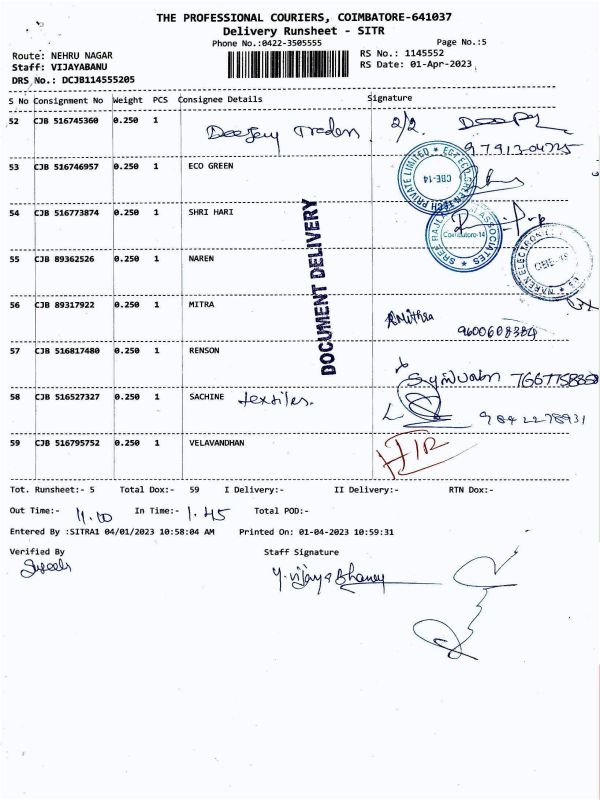 THE PROFESSIONAL COURIERS, COIMBATORE-641037
Delivery Runsheet - SITR
Phone No.:0422-3505555 Page No.:5
Route: NEHRU NAGAR RS No.: 1145552
Staff: VIJAYABANU RS Date: 01-Apr-2023
DRS No.: DCJB114555205
S No Consignment No Weight PCS Consignee Details Signature
52 CJB 516745360 0.250 1 Traders 2/2.
9791304725
53 CJB 516746957 0.250 1 ECO GREEN
54 CJB 516773874 0.250 1 SHRI HARI
55 CJB 89362526 0.250 1 NAREN
56 CJB 89317922 0.250 1 MITRA RMithra 9600608384
57 CJB 516817480 0.250 1 RENSON
58 CJB 516527327 0.250 1 SACHINE textiles. 9842278931
59 CJB 516795752 0.250 1 VELAVANDHAN
DOCUMENT DELIVERY
CBE-14
Coimbatore-14
ASSOCIATES
Tot. Runsheet:- 5 Total Dox:- 59 I Delivery:- II Delivery:- RTN Dox:-
Out Time:- 11.10 In Time:- 1.45 Total POD:-
Entered By :SITRA1 04/01/2023 10:58:04 AM Printed On: 01-04-2023 10:59:31
Verified By Staff Signature
Y.Vijaya Bhanu